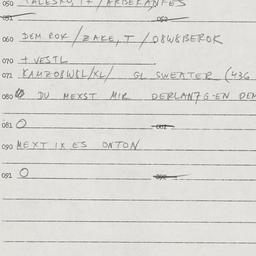 050 TALESKO, IT / ARBEKANFES
051 052
060 DEM ROK / ZAKE, T / O8W8BEROK
070 + VESTL
071 KAMZO8W8L/XL/ GL SWEATER (436
080 DU MEXST MIR DERLANZG-EN DEM
081 O
090 MEXT IX ES ONTON
091 O